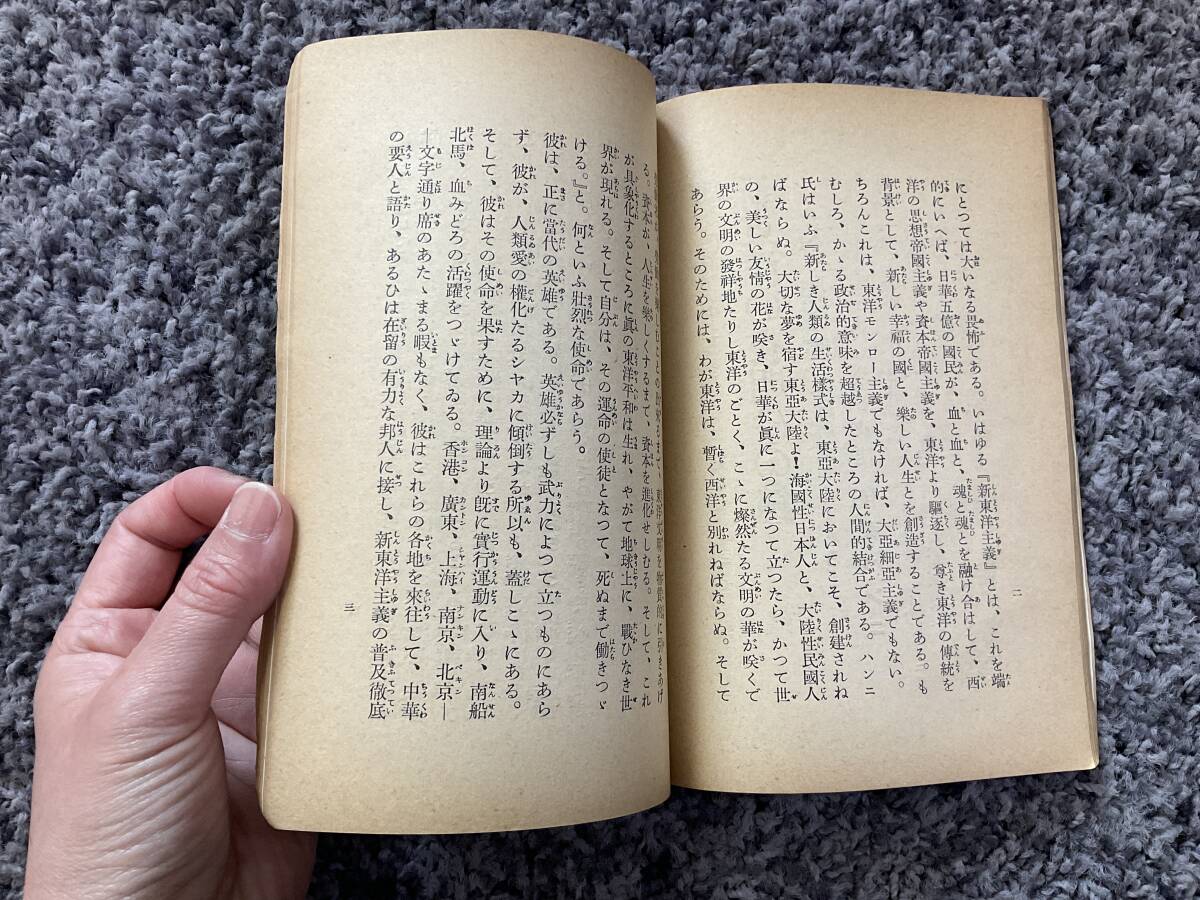 二
にとつては大いなる畏怖である。いはゆる『新東洋主義』とは、これを端
的にいへば、日華五億の國民が、血と血と、魂と魂とを融け合はして、西
洋の思想帝國主義や資本帝國主義を、東洋より驅逐し、尊き東洋の傳統を
背景として、新しい幸福の國と、樂しい人生とを創造することである。も
ちろんこれは、東洋モンロー主義でもなければ、大亞細亞主義でもない。
むしろ、かゝる政治的意味を超越したところの人間的結合である。ハンニ
氏はいふ『新しき人類の生活樣式は、東亞大陸においてこそ、創建されね
ばならぬ。大切な夢を宿す東亞大陸よ!海國性日本人と、大陸性民國人
の、美しい友情の花が咲き、日華が眞に一つになつて立つたら、かつて世
界の文明の發祥地たりし東洋のごとく、こゝに燦然たる文明の華が咲くで
あらう。そのためには、わが東洋は、暫く西洋と別れねばならぬ。そして
る。資本が、人生を樂しくするまで、資本を進化せしむる。そして、これ
が具象化するところに眞の東洋平和は生れ、やがて地球上に、戰ひなき世
界が現れる。そして自分は、その運命の使徒となつて、死ぬまで働きつゞ
ける。』と。何といふ壯烈な使命であらう。
彼は、正に當代の英雄である。英雄必ずしも武力によつて立つものにあら
ず、彼が、人類愛の權化たるシヤカに傾倒する所以も、蓋しこゝにある。
そして、彼はその使命を果すために、理論より既に實行運動に入り、南船
北馬、血みどろの活躍をつゞけてゐる。香港、廣東、上海、南京、北京―
―文字通り席のあたゝまる暇もなく、彼はこれらの各地を來往して、中華
の要人と語り、あるひは在留の有力な邦人に接し、新東洋主義の普及徹底
三